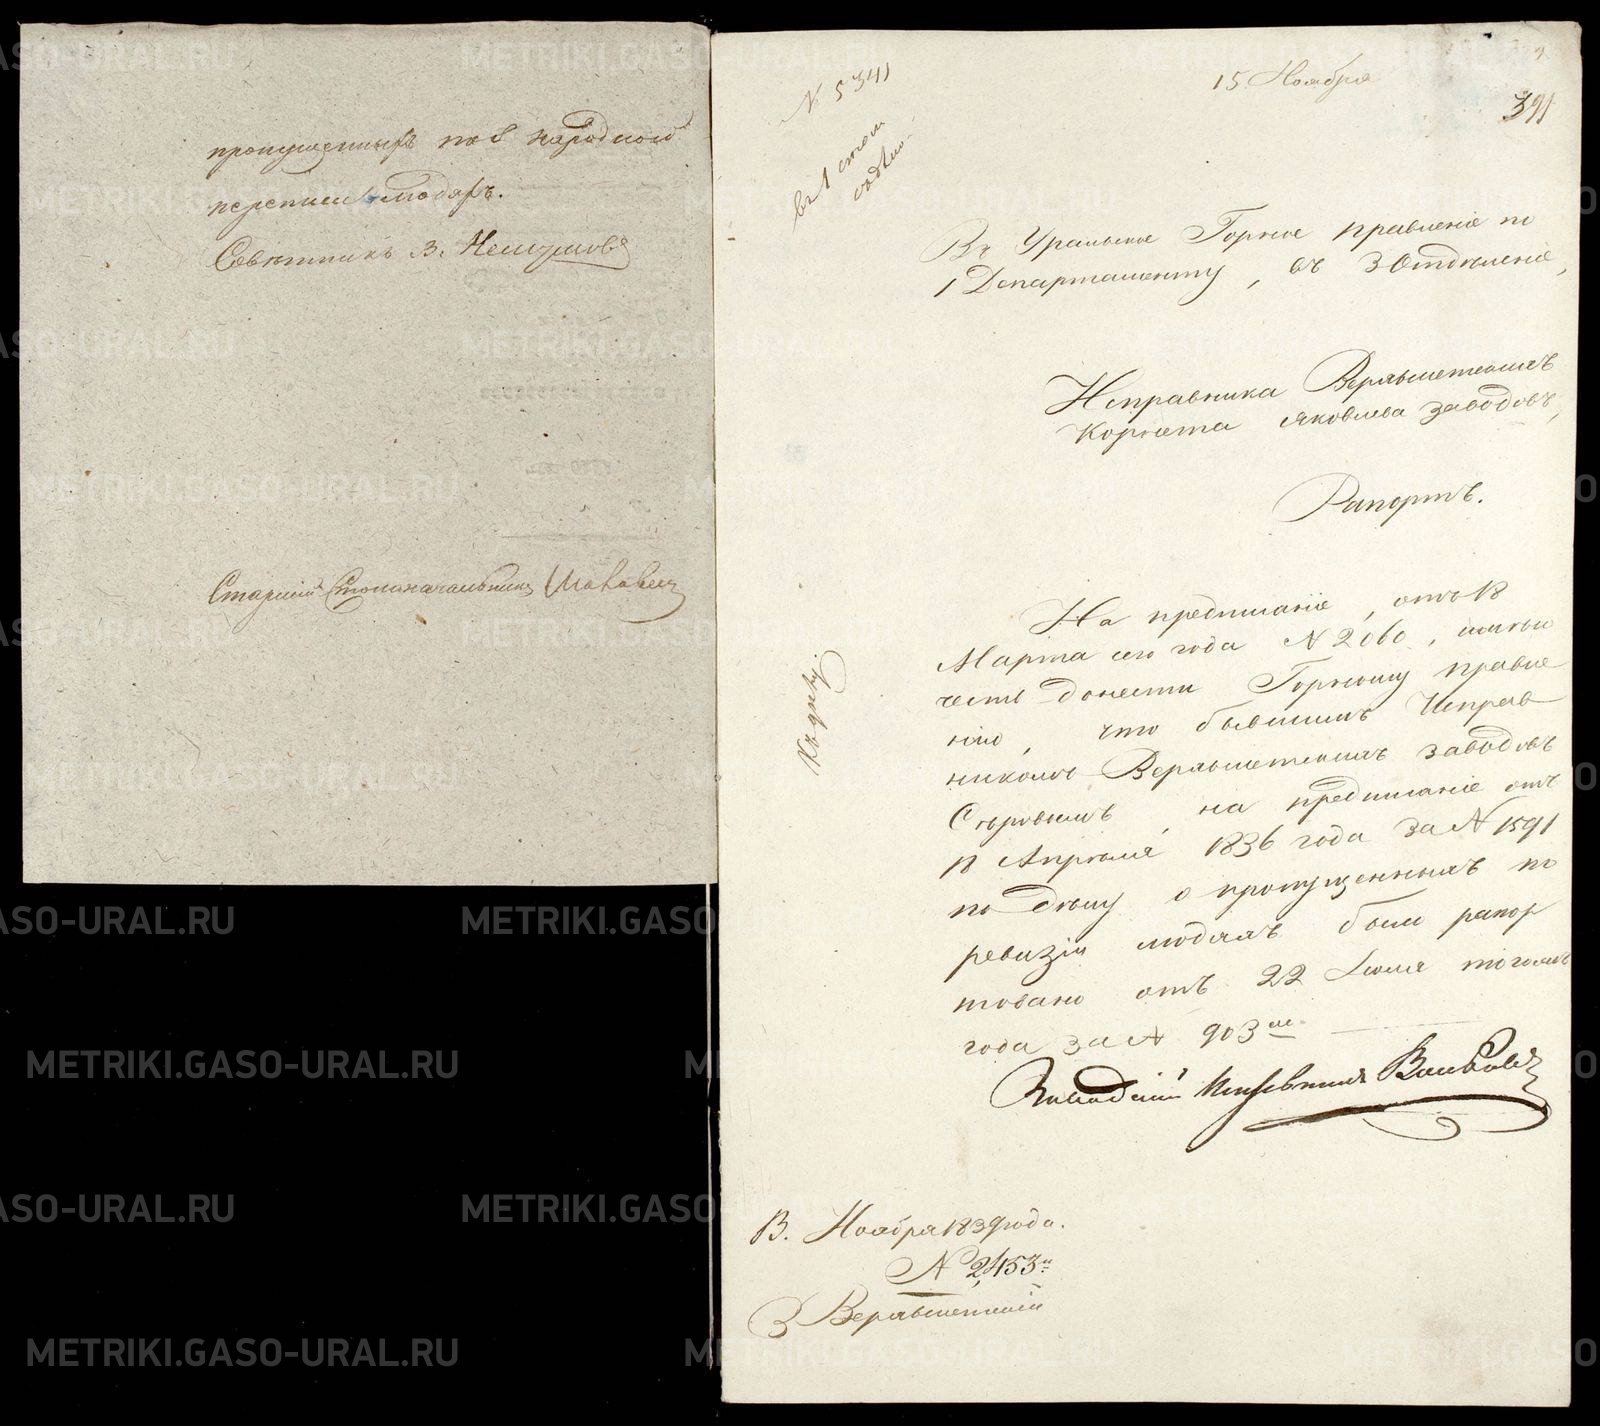 пропущенныхъ по 8 народной
переписи людяхъ.
Совѣтникъ З.
Старшій Столоначальникъ
№ 5341
въ 1 столъ
15 Ноября
391
Въ Уральское Горное Правленіе по
1 Департаменту, въ 3 Отдѣленіе,
Исправника Верхъисетскихъ
Корнета Яковлева заводовъ,
Рапортъ.
На предписаніе, отъ 18
Марта сего года № 2060, имѣю
честь донести Горному Правле
нію, что бывшимъ Исправ
никомъ Верхъисетскихъ заводовъ
на предписаніе отъ
18 Апрѣля 1836 года за № 1591
по дѣлу о пропущенныхъ по
ревизіи людяхъ было рапор
товано отъ 22 Іюля тогожъ
года за № 903мъ
Къ дѣлу.
Заводскій Исправникъ
13. Ноября 1839 года.
№ 2453й
З Верхъисетскій
METRIKI.GASO-URAL.RU